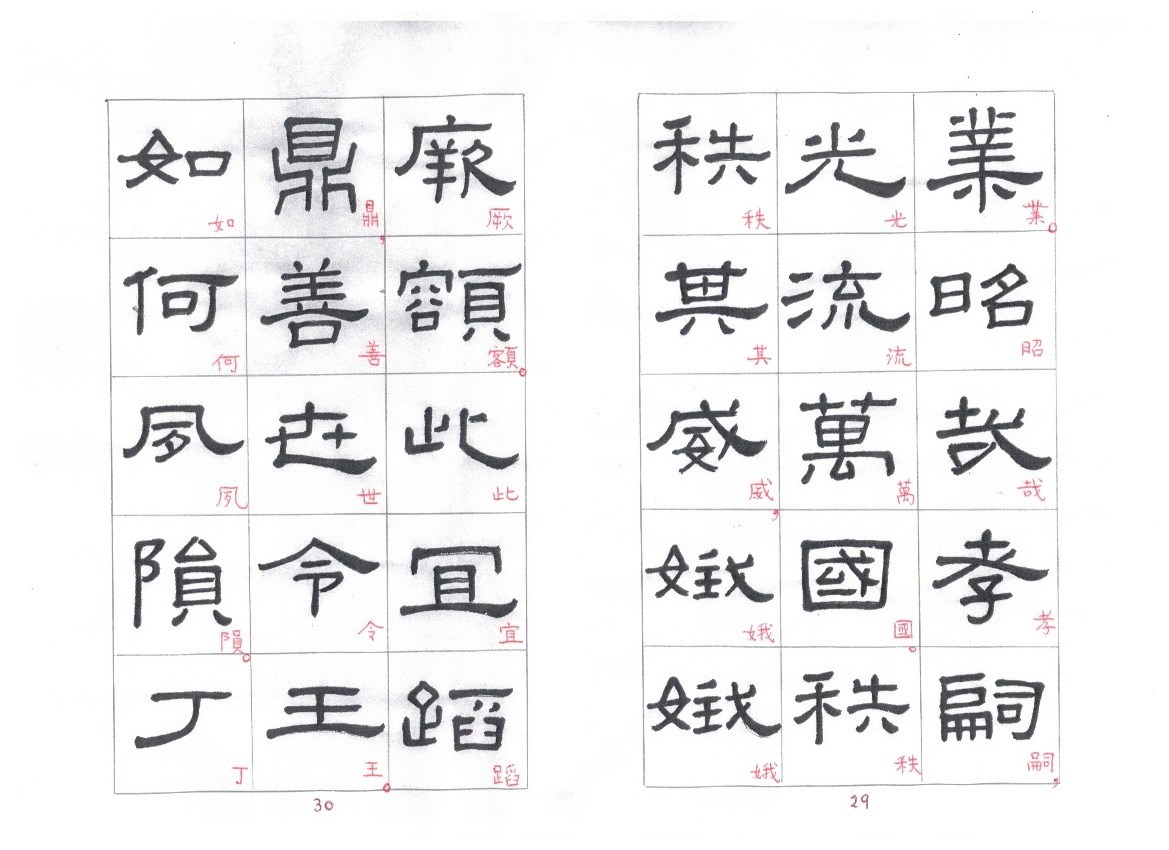 業昭哉孝嗣
業。昭哉孝嗣，
光流萬國秩
光流萬國。秩
秩其威娥娥
秩其威，娥娥
29
厥額此宜蹈
厥額。此宜蹈
鼎善世令王
鼎，善世令王。
如何夙隕丁
如何夙隕。丁
30